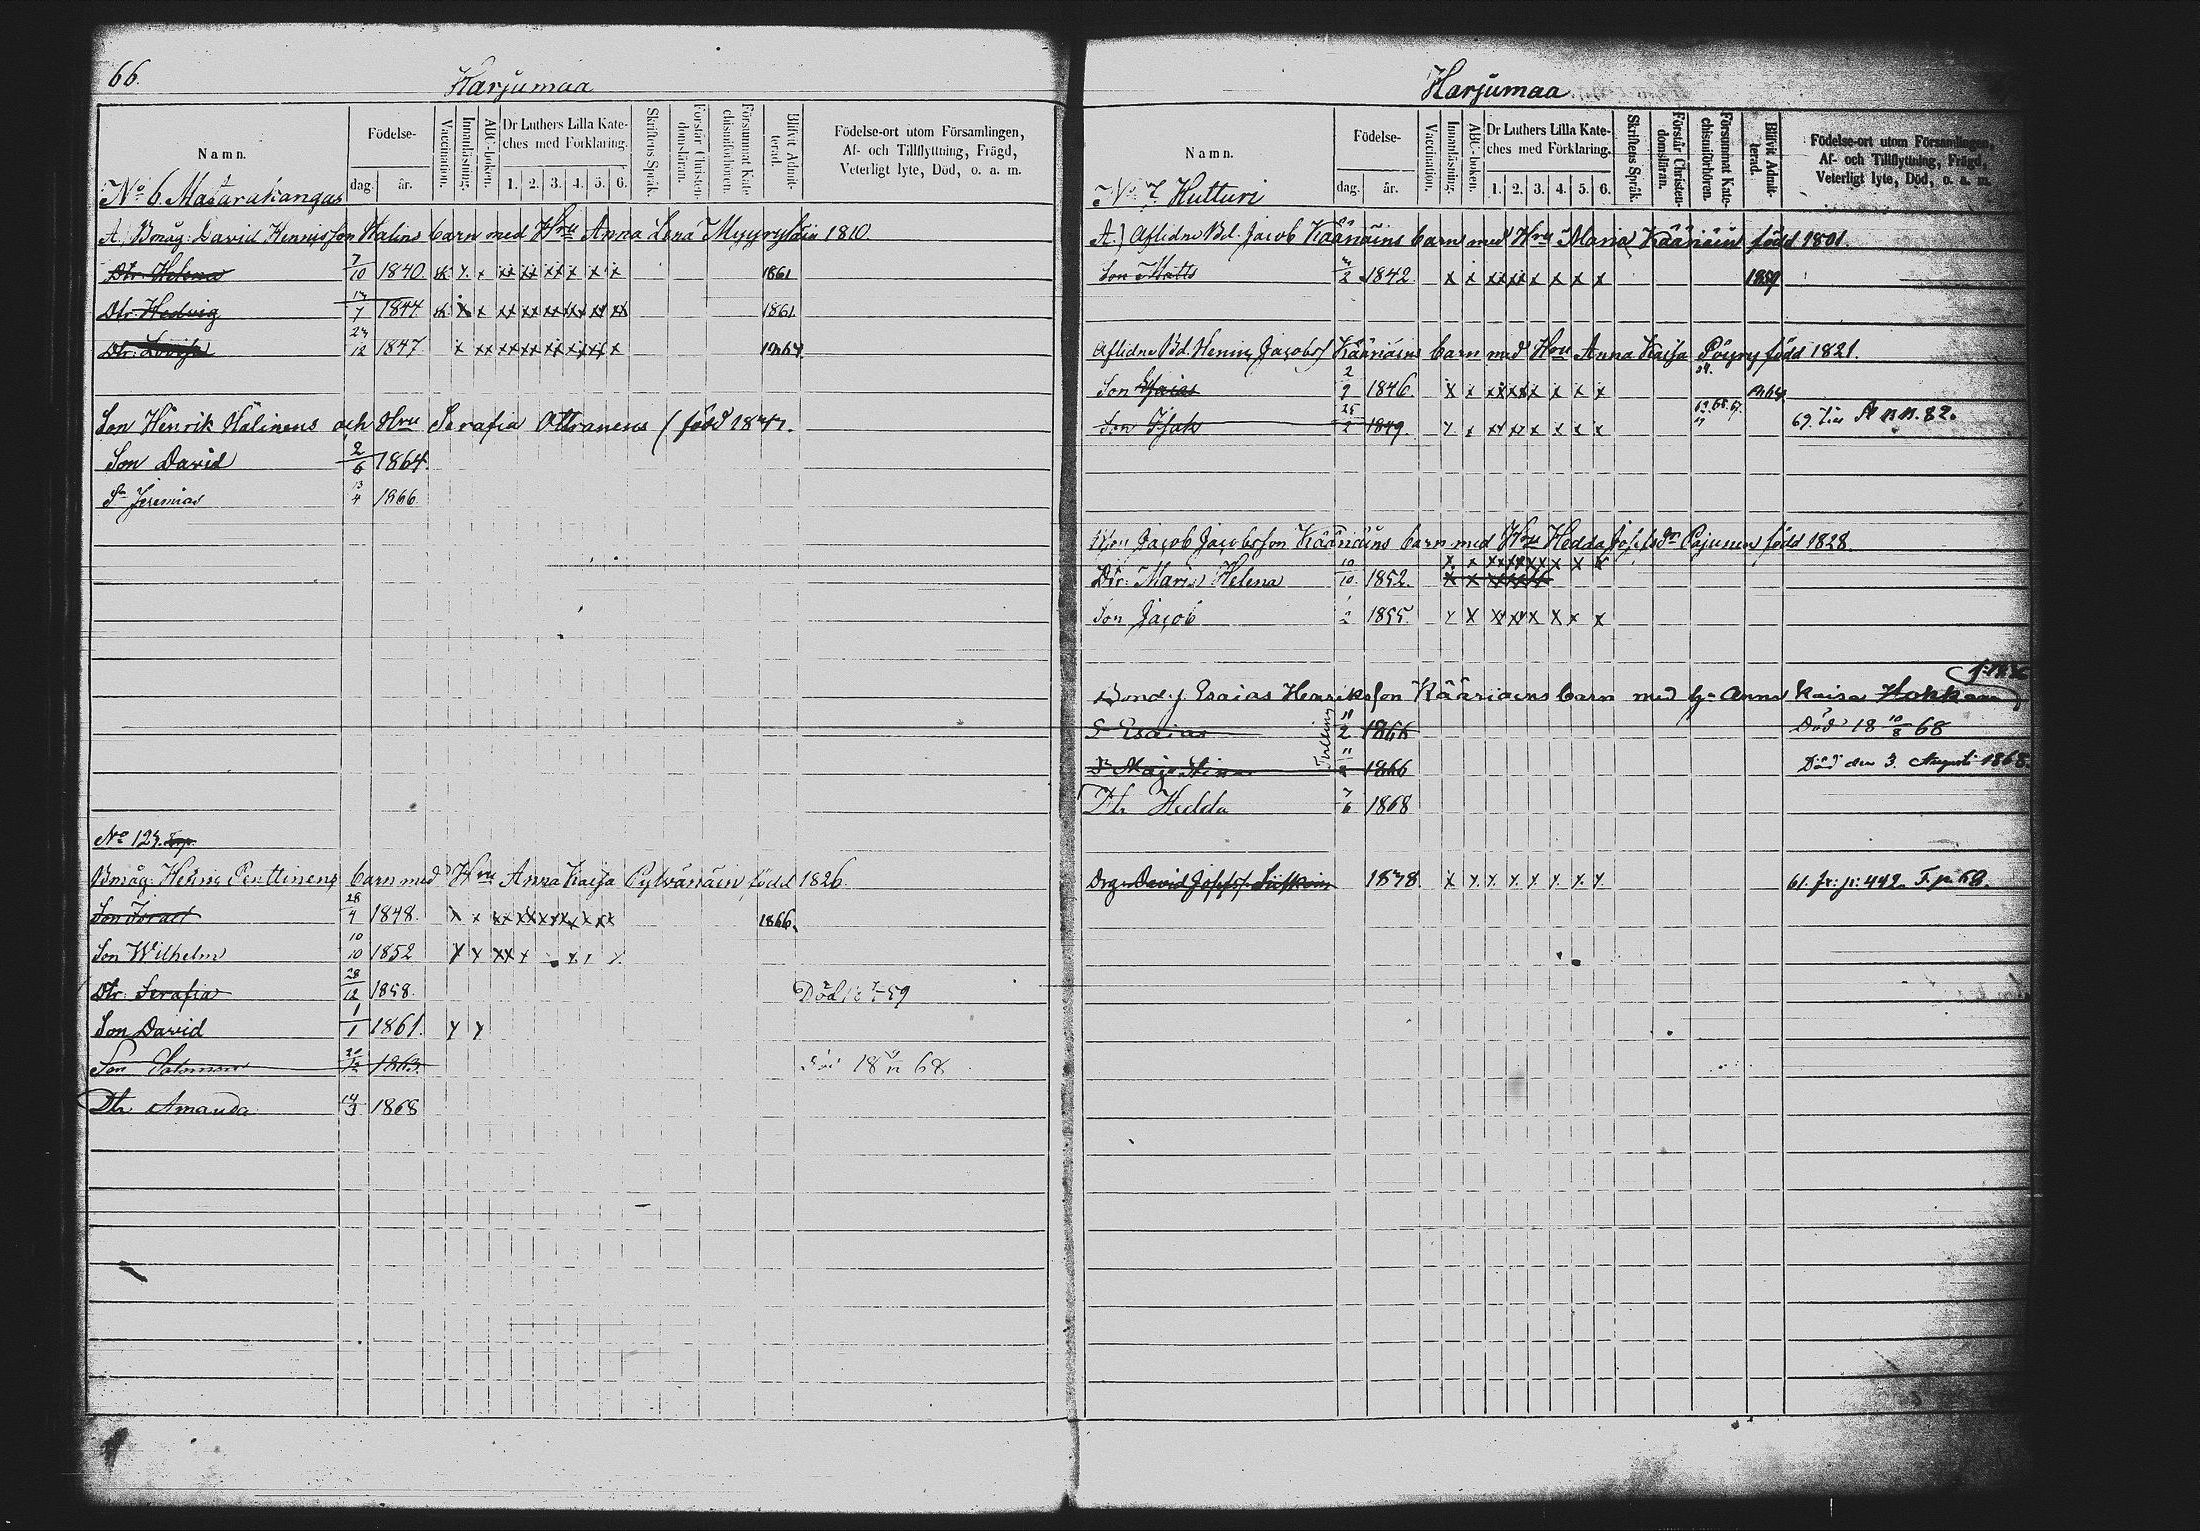 66.
Harjumaa
Namn.
Födelse-
dag. år.
Vaccination.
Innanläsning.
ABC-boken.
Dr Luthers Lilla Kate-
ches med Förklaring.
1. 2. 3. 4. 5. 6.
Skriftens Språk.
Förstår Christen-
domsläran.
Försummat Kate-
chismiförhören.
Blifvit Admit-
terad.
Födelse-ort utom Församlingen,
Af- och Tillflyttning, Frägd,
Veterligt lyte, Död, o. a. m.
No 6. Matarakangas
A.) Bmåg: David Hennisson Halins barn med Hru Anna Lena 1810
Dtr. Helena 7/10 1840. x x xx xx xx x x x 1861
Dtr Hedvig 1844 x x xx xx xx xx xx xx 1861.
Dtr: Lovisa 12 1847. x xx xx xx xx xx xx x
Son Henrik Hälinens och Hru Serafia Ottranens född
Son David 2/6 1864.
Sn Jeremias 13/4 1866.
No 123.
Bmåg: Henric Penttinens barn med Hru Anna Kaisa Pylvänäin, född 1826.
Son Israel 28/4 1848. x x xx xx xx xx x xx 1866.
Son Wilhelm 10/10 1852 x x xx x
Dtr: Serafia 28/12 1858. Död 59
Son David 1/1 1861. y y
Son Salomon 1863. 18 68
Dtr Amanda 1868
Harjumaa
Namn.
Födelse-
dag. år.
Vaccination.
Innanläsning.
ABC-boken.
Dr Luthers Lilla Kate-
ches med Förklaring.
1. 2. 3. 4. 5. 6.
Skriftens Språk.
Förstår Christen-
domsläran.
Försummat Kate-
chismiförhören.
Blifvit Admit-
terad.
Födelse-ort utom Församlingen,
Af- och Tillflyttning, Frägd,
Veterligt lyte, Död, o. a. m.
No 7 Hutturi
A.) Aflidne Bd. Jacob Kääriäins barn med Hru Maria Kääriäin född 1801.
Son Matts 1842 x x xx xx x x x x 1859
Aflidne Bd. Henric Jacobss Kääriäins barn med Hru Anna Kaisa Pöyry född 1821.
Son Esaias 2/9 1846. x x xx xx x x x x
Son Isak 25/2 1849. x x xx xx x x x x 63.65.67. 69.
Jacob Jacobsson Kääriäins barn med Hru Hedda Josefsdr Pajunen född 1828.
Dtr: Maria Helena 10/10 1852. x x xx xx xx x x x
Son Jacob 1/2 1855. x x xx xx x x x x
Bond. f. Esaias Henriksson Kääriäens barn med h. Anna Kaisa Hokkaan
S Esaias Tvilling 11/2 1866 Död 18 10/8 68
Dr Maja Stina 11/2 1866 Död den 3. Augusti 1868.
Dtr Hedda 7/6 1868
Drg David Josefss. 1838. x x x x x x x x 61. fr: p: 442. F. p. 69.